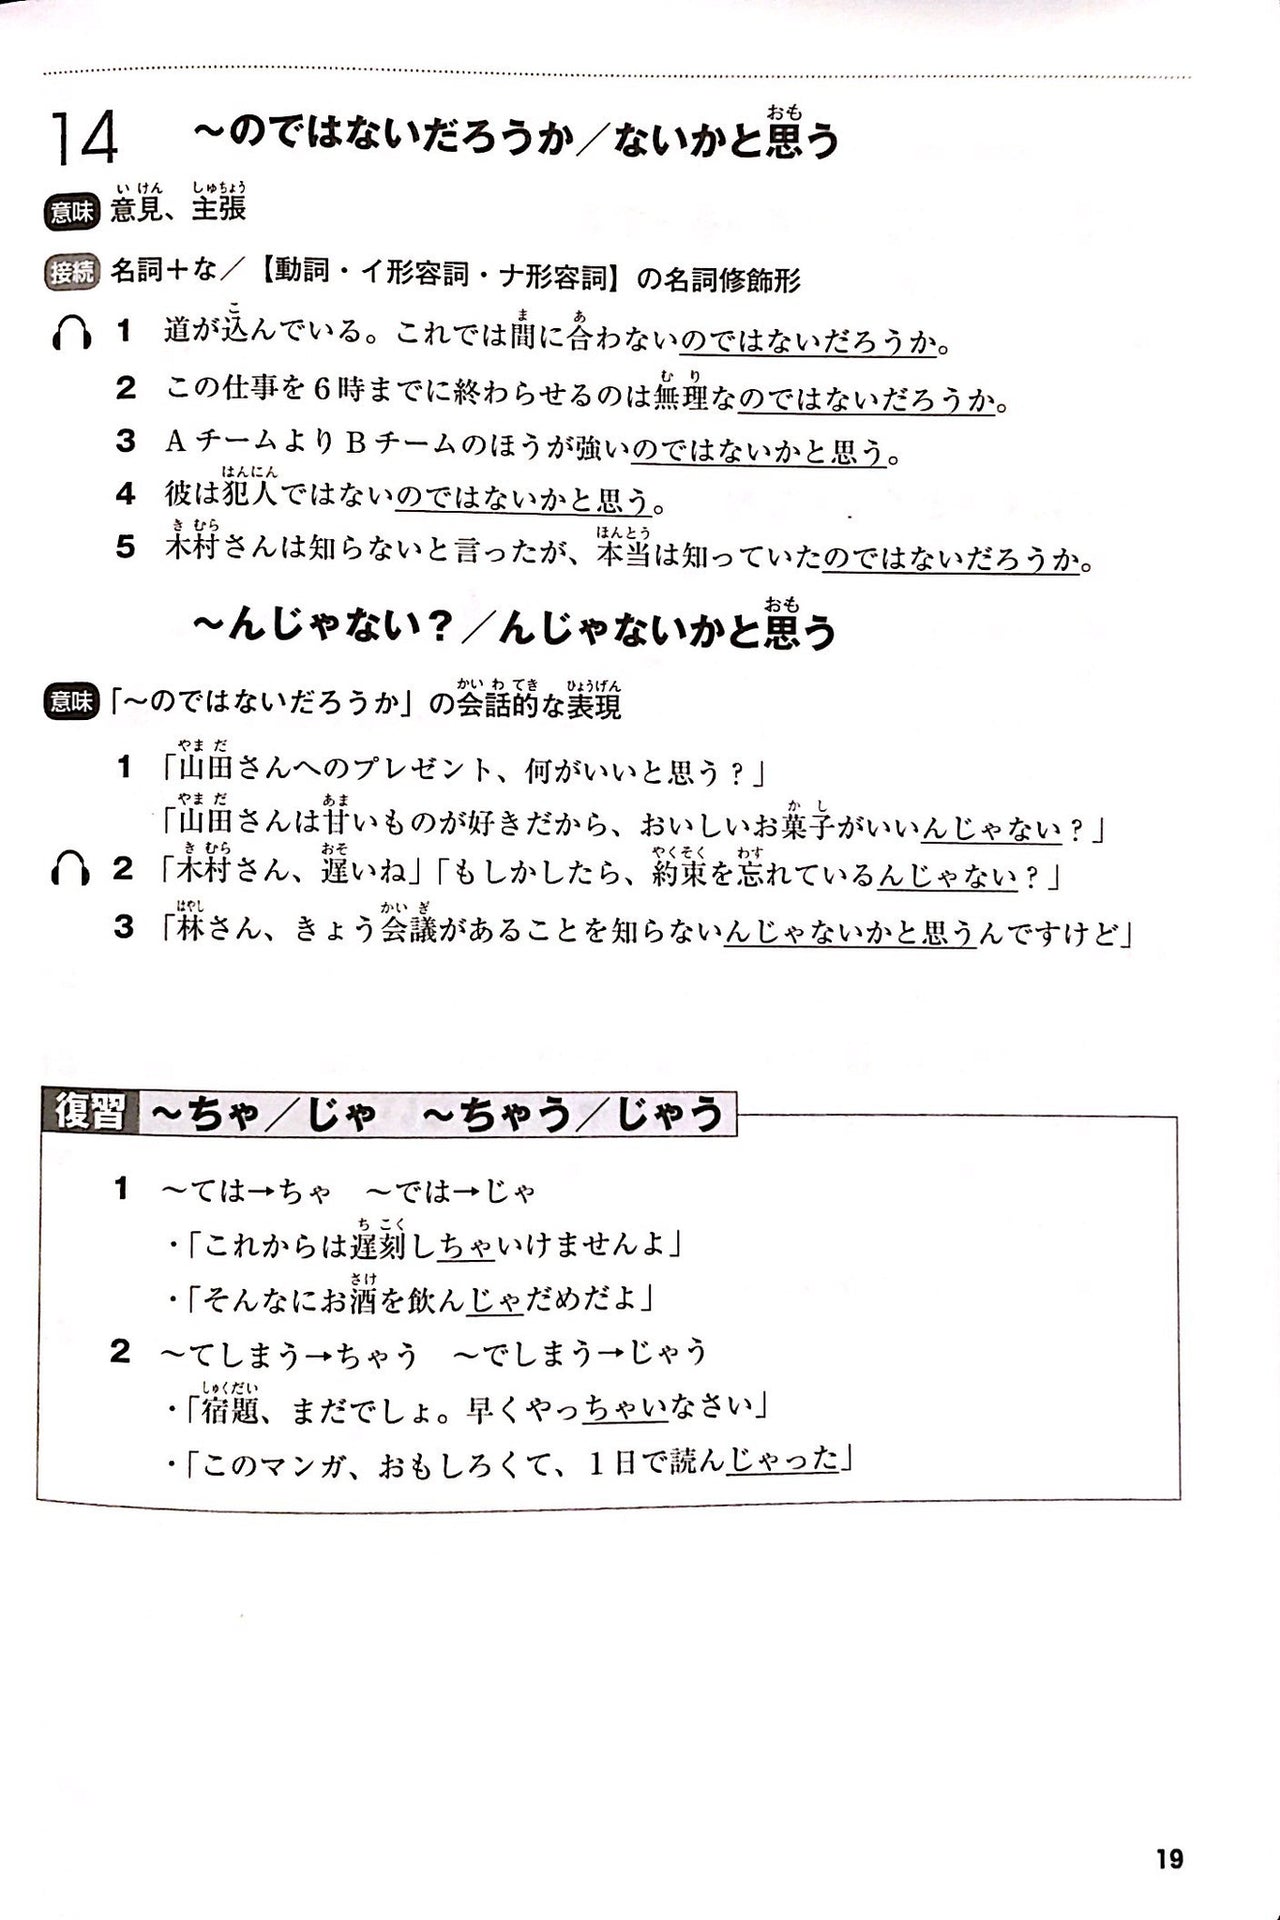 14 ～のではないだろうか／ないかと思う
意味 意見、主張
接続 名詞＋な／【動詞・イ形容詞・ナ形容詞】の名詞修飾形
1 道が込んでいる。これでは間に合わないのではないだろうか。
2 この仕事を６時までに終わらせるのは無理なのではないだろうか。
3 AチームよりBチームのほうが強いのではないかと思う。
4 彼は犯人ではないのではないかと思う。
5 木村さんは知らないと言ったが、本当は知っていたのではないだろうか。
～んじゃない？／んじゃないかと思う
意味 「～のではないだろうか」の会話的な表現
1 「山田さんへのプレゼント、何がいいと思う？」
「山田さんは甘いものが好きだから、おいしいお菓子がいいんじゃない？」
2 「木村さん、遅いね」「もしかしたら、約束を忘れているんじゃない？」
3 「林さん、きょう会議があることを知らないんじゃないかと思うんですけど」
復習 ～ちゃ／じゃ ～ちゃう／じゃう
1 ～ては→ちゃ ～では→じゃ
・「これからは遅刻しちゃいけませんよ」
・「そんなにお酒を飲んじゃだめだよ」
2 ～てしまう→ちゃう ～でしまう→じゃう
・「宿題、まだでしょ。早くやっちゃいなさい」
・「このマンガ、おもしろくて、１日で読んじゃった」
19